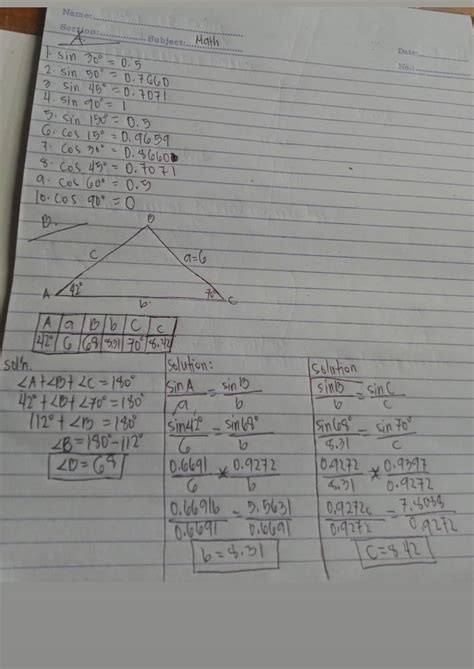 Name:
Section: Subject: Math Date:
No.:
A
1. sin 30° = 0.5
2. sin 50° = 0.7660
3. sin 45° = 0.7071
4. sin 90° = 1
5. sin 150° = 0.5
6. cos 15° = 0.9659
7. cos 30° = 0.8660
8. cos 45° = 0.7071
9. cos 60° = 0.5
10. cos 90° = 0
B.
B
c
a=6
A 42° 70° C
b
A a B b C c
42° 6 68 8.31 70° 8.42
Soln.
∠A+∠B+∠C=180°
42°+∠B+∠70°=180°
112°+∠B=180°
∠B=180°-112°
∠B=68
Solution:
sinA/a = sinB/b
sin42°/6 = sin68°/b
0.6691/6 * 0.9272/b
0.6691b/0.6691 = 5.5631/0.6691
b=8.31
Solution
sinB/b = sinC/c
sin68°/8.31 = sin70°/c
0.9272/8.31 * 0.9397/0.9272
0.9272c/0.9272 = 7.8088/0.9272
c=8.42